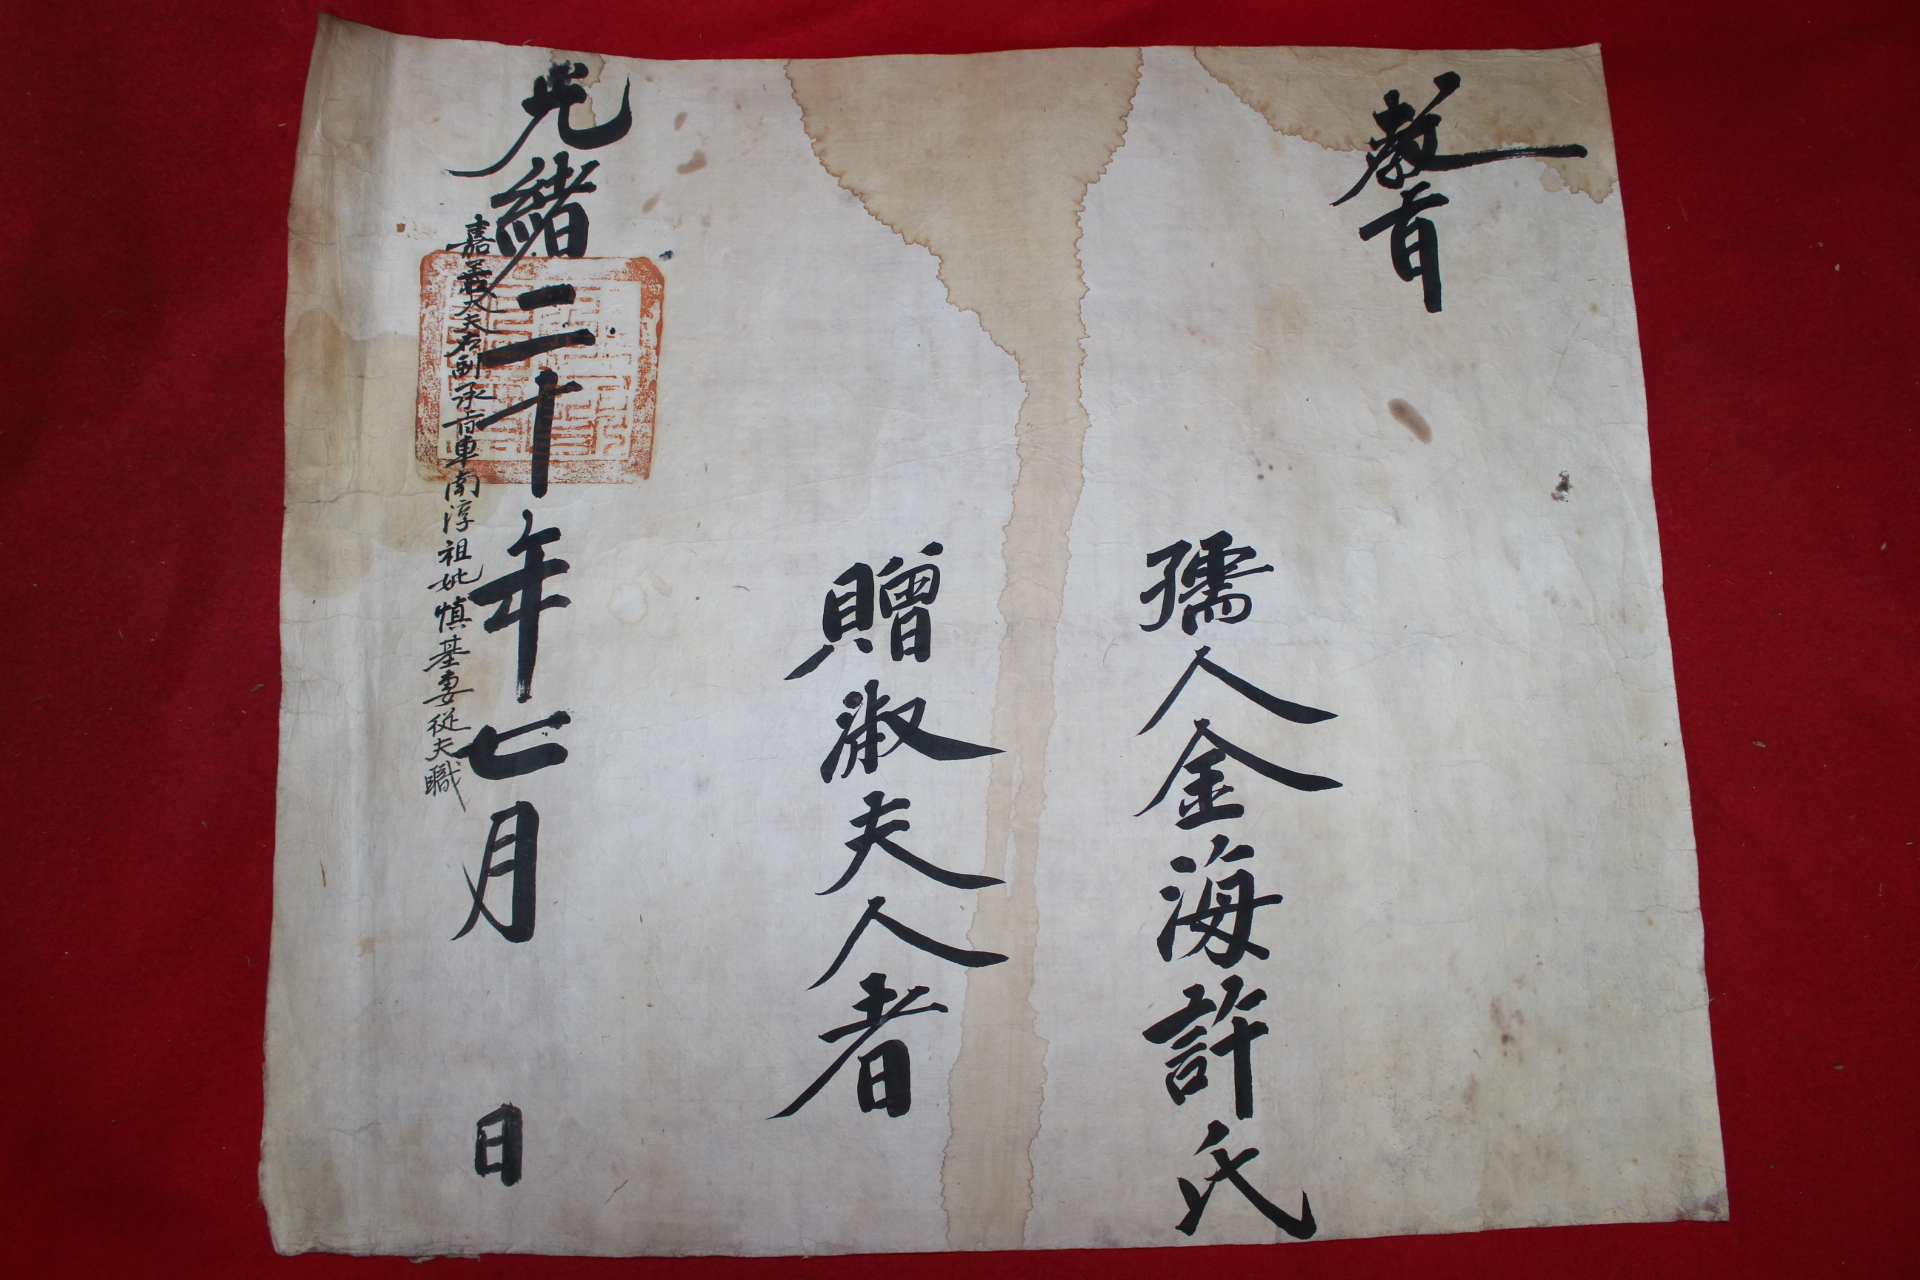 敎旨
孺人金海許氏
贈淑夫人者
光緖二十年七月 日
嘉善大夫右副承旨車南淳祖妣慎基妻從夫職